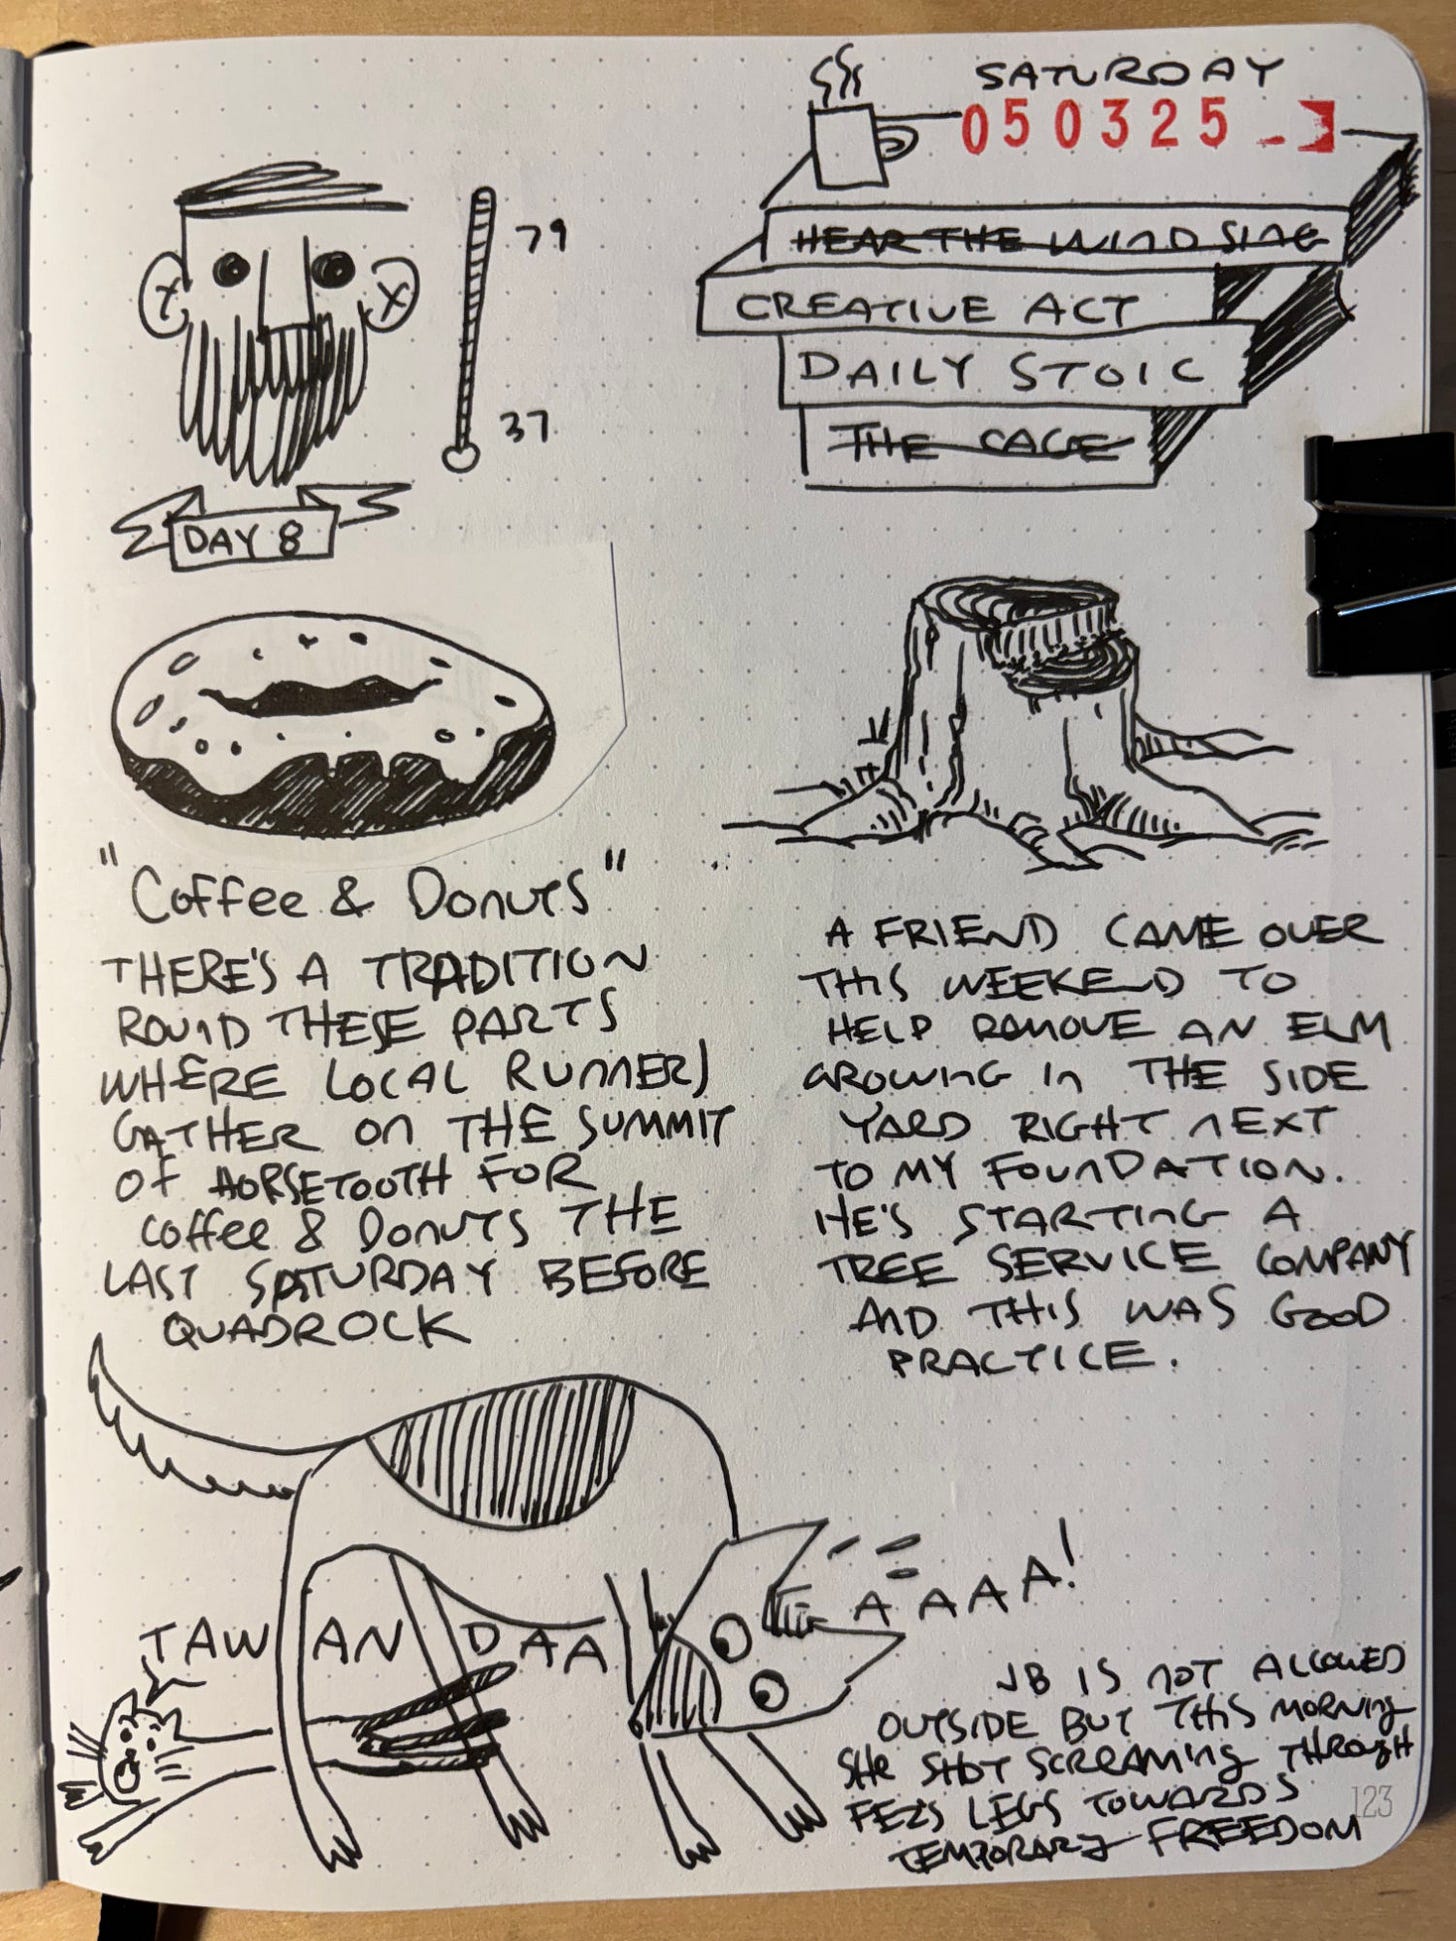 SATURDAY
050325
79
37
HEAR THE WIND SING
CREATIVE ACT
DAILY STOIC
THE CAGE
DAY 8
"Coffee & Donuts"
THERE'S A TRADITION
ROUND THESE PARTS
WHERE LOCAL RUNNERS
GATHER ON THE SUMMIT
OF HORSETOOTH FOR
Coffee & Donuts THE
LAST SATURDAY BEFORE
QUADROCK
A FRIEND CAME OVER
THIS WEEKEND TO
HELP REMOVE AN ELM
GROWING IN THE SIDE
YARD RIGHT NEXT
TO MY FOUNDATION.
HE'S STARTING A
TREE SERVICE COMPANY
AND THIS WAS GOOD
PRACTICE.
TAWANDAA
AAAAA!
JB IS NOT ALLOWED
OUTSIDE BUT THIS MORNING
SHE SHOT SCREAMING THROUGH
FEZ'S LEGS TOWARDS
TEMPORARY FREEDOM
123